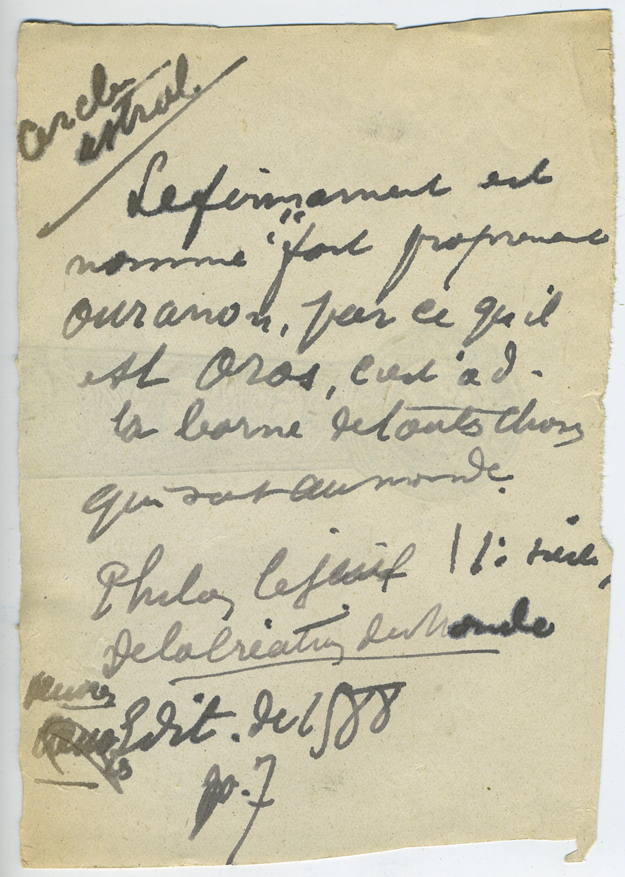 cercle
astral
Le firmament est
nommé "fort proprement
ouranon, par ce qu'il
est Oros, c'est à d.
la borne de toutes choses
qui sont au monde.
Philon le juif | 1er siècle,
De la Création du Monde
Œuvres
Edit. de 1588
p. 7